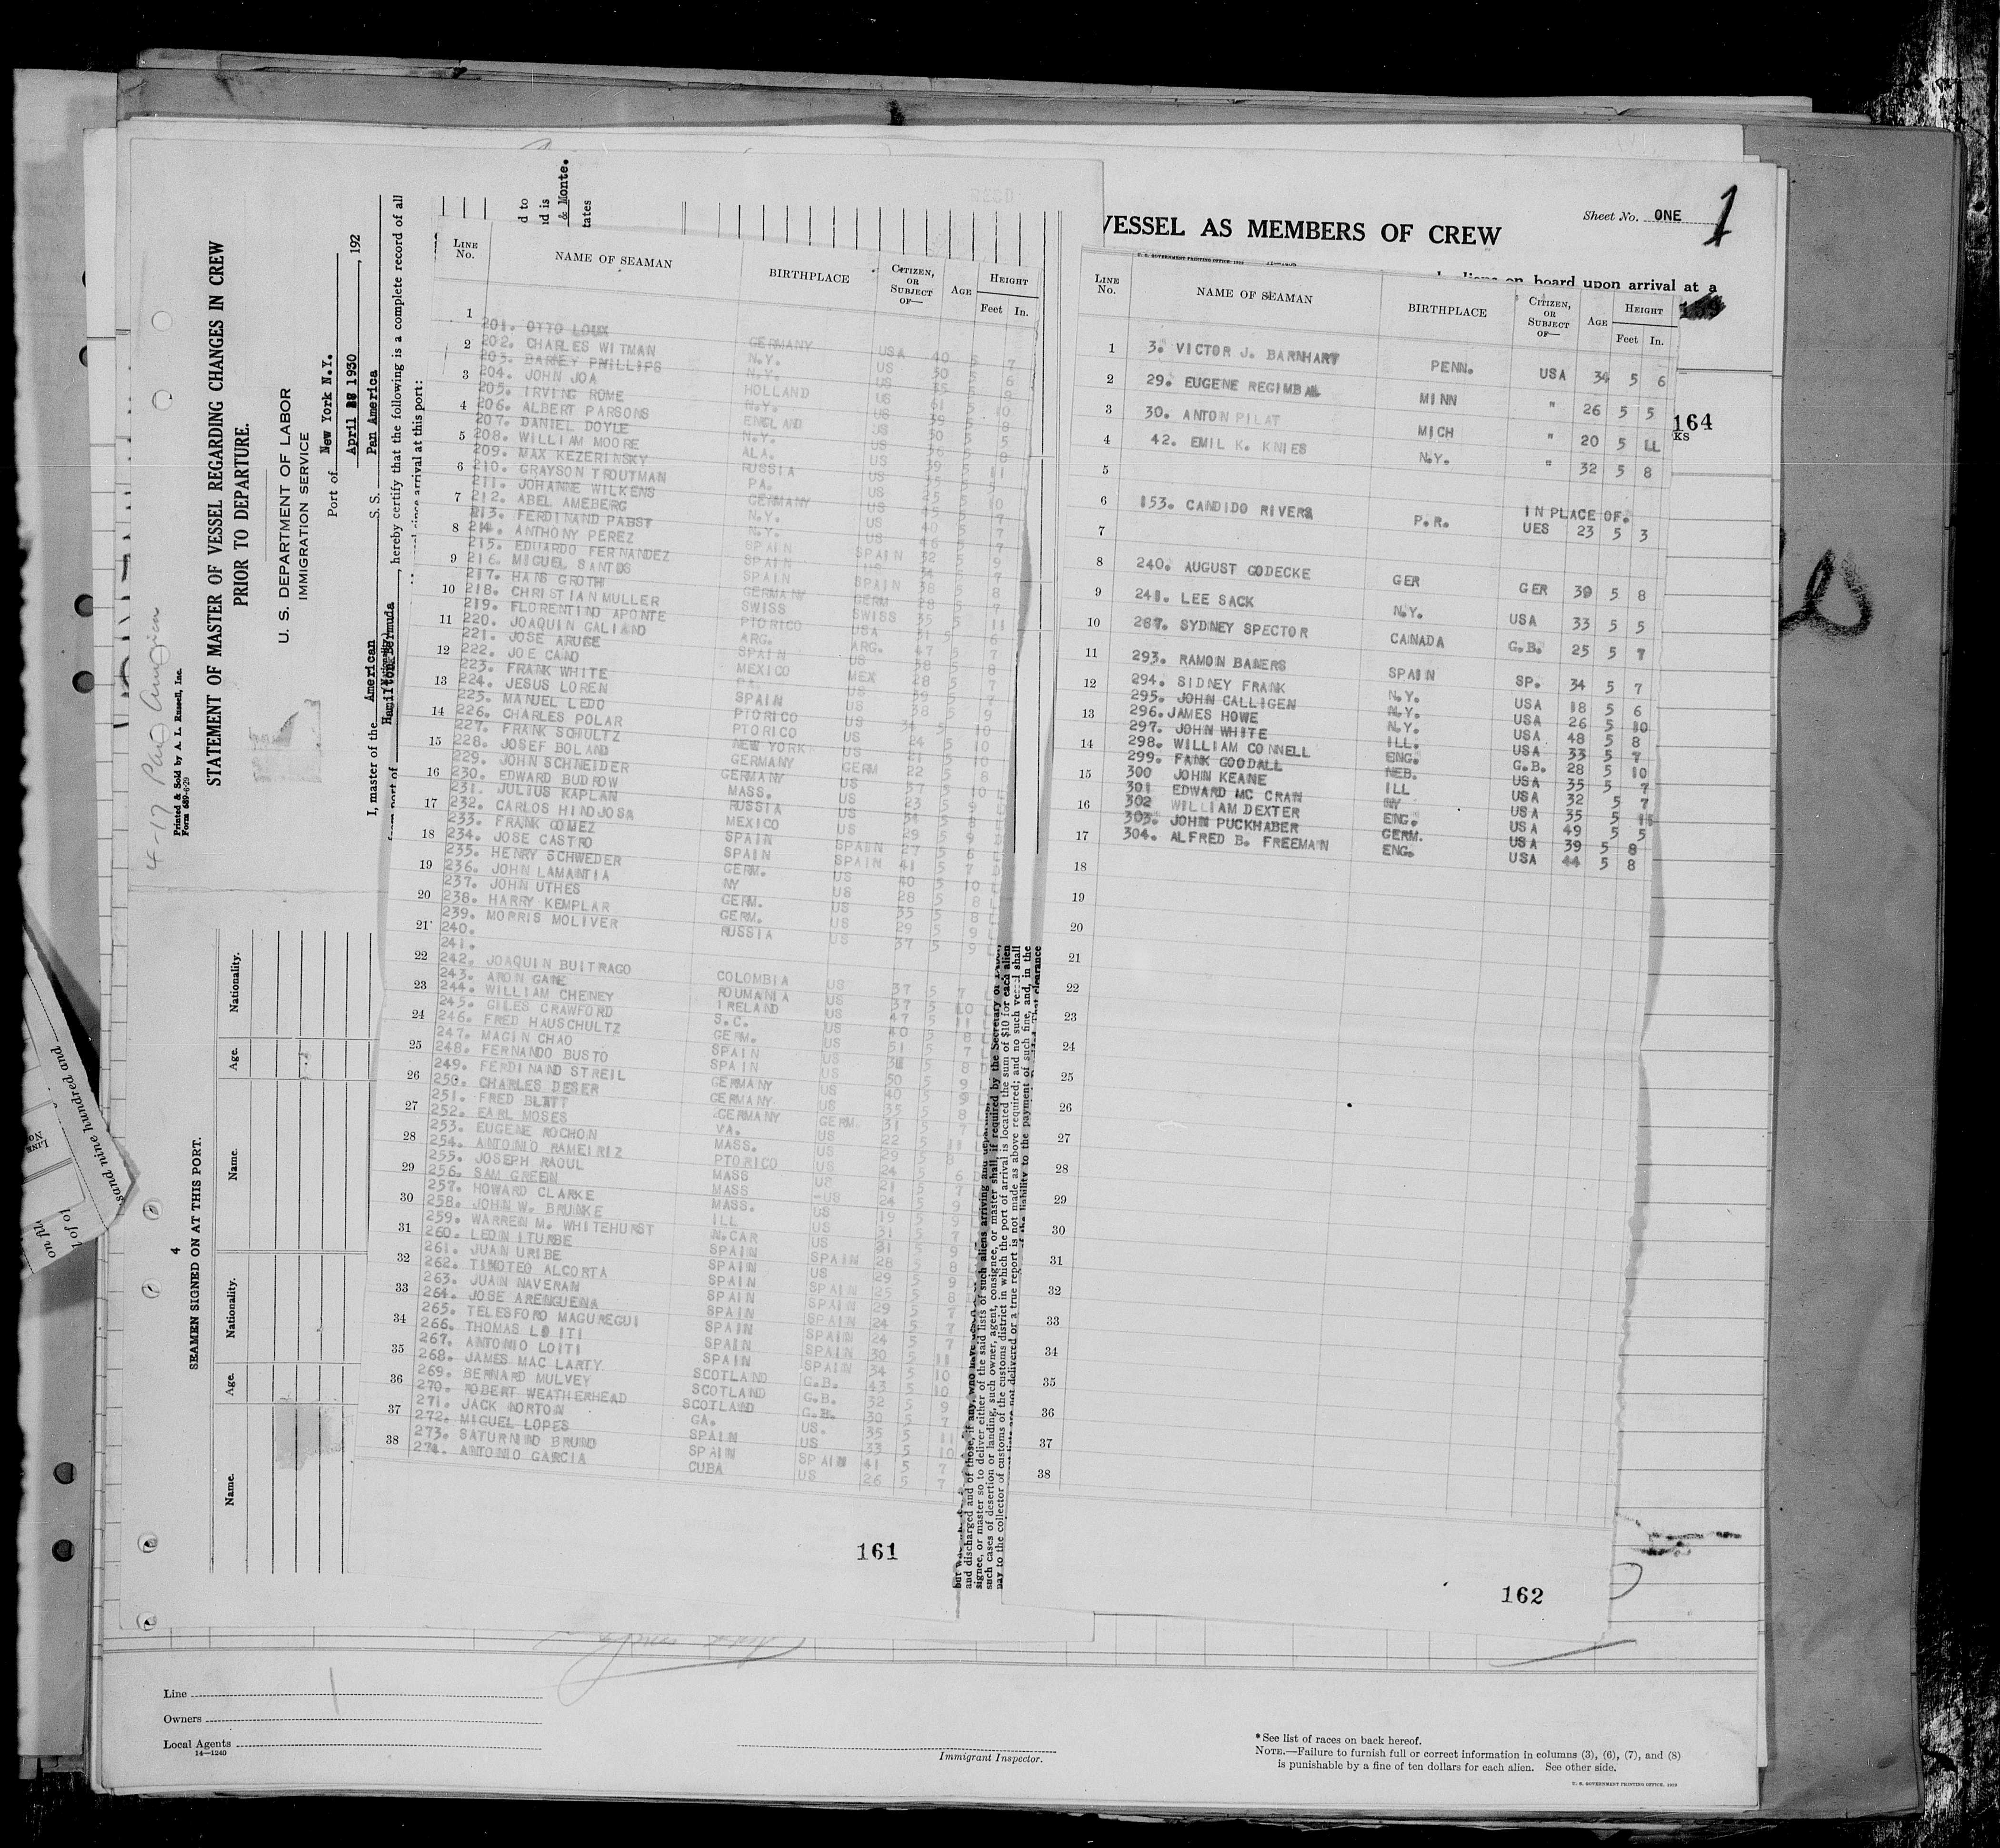 Sheet No. ONE 1
VESSEL AS MEMBERS OF CREW
on board upon arrival at a
164
KS
STATEMENT OF MASTER OF VESSEL REGARDING CHANGES IN CREW
PRIOR TO DEPARTURE.
U. S. DEPARTMENT OF LABOR
IMMIGRATION SERVICE
Port of New York N.Y.
April 28 1930, 192
I, master of the American S. S. Pan America
Hamilton Bermuda, hereby certify that the following is a complete record of all
since arrival at this port:
4-17 Pan America
Printed & Sold by A. L. Russell, Inc.
Form 689-6-29
d to
nd is
& Monte.
tates
4
SEAMEN SIGNED ON AT THIS PORT.
Name. Age. Nationality. Name. Age. Nationality.
sand nine hundred and
LINE No. NAME OF SEAMAN BIRTHPLACE CITIZEN, OR SUBJECT OF— AGE HEIGHT Feet In.
201. OTTO LOUX GERMANY USA 40 5 7
202. CHARLES WITMAN N.Y. US 30 5 6
203. BARNEY PHILLIPS N.Y. US 35 5
204. JOHN JOA HOLLAND US 61 5 10
205. IRVING ROME N.Y. US 39 5 8
206. ALBERT PARSONS ENGLAND US 30 5 5
207. DANIEL DOYLE N.Y. US 36 5 8
208. WILLIAM MOORE ALA. US 39 5 11
209. MAX KEZERINSKY RUSSIA US 35 5
210. GRAYSON TROUTMAN PA. US 25 5 10
211. JOHANNE WILKENS GERMANY US 45 5 7
212. ABEL AMEBERG N.Y. US 40 5 7
213. FERDINAND PABST N.Y. US 46 5 7
214. ANTHONY PEREZ SPAIN SPAIN 32 5 9
215. EDUARDO FERNANDEZ SPAIN US 34 5 7
216. MIGUEL SANTOS SPAIN SPAIN 38 5 8
217. HANS GROTH GERMANY GERM 28 5 7
218. CHRISTIAN MULLER SWISS SWISS 35 5 11
219. FLORENTINO APONTE PTORICO USA 31 5 6
220. JOAQUIN GALIANO ARG. ARG. 47 5 7
221. JOSE ARUGE SPAIN US 38 5 8
222. JOE CANO MEXICO MEX 28 5 7
223. FRANK WHITE PA. US 39 5 7
224. JESUS LOREN SPAIN US 38 5 9
225. MANUEL LEDO PTORICO US 34 5 10
226. CHARLES POLAR PTORICO US 24 5 10
227. FRANK SCHULTZ NEW YORK US 21 5 10
228. JOSEF BOLAND GERMANY GERM 22 5 8
229. JOHN SCHNEIDER GERMANY US 37 5 10
230. EDWARD BUDROW MASS. US 23 5 9
231. JULIUS KAPLAN RUSSIA US 34 5 8
232. CARLOS HINOJOSA MEXICO US 29 5 9
233. FRANK GOMEZ SPAIN SPAIN 27 5 6
234. JOSE CASTRO SPAIN SPAIN 41 5 7
235. HENRY SCHWEDER GERM. US 40 5 10
236. JOHN LAMANTIA NY US 28 5 8
237. JOHN UTHES GERM. US 35 5 8
238. HARRY KEMPLAR GERM. US 29 5 9
239. MORRIS MOLIVER RUSSIA US 37 5 9
240.
241.
242. JOAQUIN BUITRAGO COLOMBIA US 37 5 7
243. ARON GANE ROUMANIA US 37 5 10
244. WILLIAM CHENEY IRELAND US 47 5 11
245. GILES CRAWFORD S.C. US 40 5 8
246. FRED HAUSCHULTZ GERM. US 51 5 7
247. MAGIN CHAO SPAIN US 5 8
248. FERNANDO BUSTO SPAIN US 50 5 9
249. FERDINAND STREIL GERMANY US 40 5 9
250. CHARLES DESER GERMANY US 35 5 8
251. FRED BLATT GERMANY GERM. 31 5 7
252. EARL MOSES VA. US 22 5 11
253. EUGENE ROCHON MASS. US 29 5 8
254. ANTONIO RAMEIRIZ PTORICO US 24 5 6
255. JOSEPH RAOUL MASS US 21 5 7
256. SAM GREEN MASS US 24 5 9
257. HOWARD CLARKE MASS. US 19 5 9
258. JOHN W. BRUNKE ILL US 31 5 7
259. WARREN M. WHITEHURST N.CAR US 31 5 9
260. LEON ITURBE SPAIN SPAIN 28 5 8
261. JUAN URIBE SPAIN US 29 5 9
262. TIMOTEO ALCORTA SPAIN SPAIN 25 5 8
263. JUAN NAVERAN SPAIN SPAIN 29 5 7
264. JOSE ARENGUENA SPAIN SPAIN 24 5 7
265. TELESFORO MAGUREGUI SPAIN SPAIN 24 5 7
266. THOMAS LOITI SPAIN SPAIN 30 5 11
267. ANTONIO LOITI SPAIN SPAIN 34 5 10
268. JAMES MAC LARTY SCOTLAND G.B. 43 5 10
269. BERNARD MULVEY SCOTLAND G.B. 32 5 9
270. ROBERT WEATHERHEAD SCOTLAND G.B. 30 5 7
271. JACK NORTON GA. US. 35 5 11
272. MIGUEL LOPES SPAIN US 33 5 10
273. SATURNINO BRUNO SPAIN SPAIN 41 5 7
274. ANTONIO GARCIA CUBA US 26 5 7
161
and discharged and of those, if any, who have
signee, or master so to deliver either of the said lists of such aliens arriving and
such cases of desertion or landing, such owner, agent, consignee, or master shall, if required by the Secretary of Labor,
pay to the collector of customs of the customs district in which the port of arrival is located the sum of $10 for each alien
not delivered or a true report is not made as above required; and no such vessel shall
the liability to the payment of such fine, and, in the
LINE No. NAME OF SEAMAN BIRTHPLACE CITIZEN, OR SUBJECT OF— AGE HEIGHT Feet In.
3. VICTOR J. BARNHART PENN. USA 34 5 6
29. EUGENE REGIMBAL MINN " 26 5 5
30. ANTON PILAT MICH " 20 5 LL
42. EMIL K. KNIES N.Y. " 32 5 8
IN PLACE OF.
153. CANDIDO RIVERA P.R. UES 23 5 3
240. AUGUST GODECKE GER GER 39 5 8
241. LEE SACK N.Y. USA 33 5 5
287. SYDNEY SPECTOR CANADA G.B. 25 5 7
293. RAMON BANERS SPAIN SP. 34 5 7
294. SIDNEY FRANK N.Y. USA 18 5 6
295. JOHN CALLIGEN N.Y. USA 26 5 10
296. JAMES HOWE N.Y. USA 48 5 8
297. JOHN WHITE ILL. USA 33 5 7
298. WILLIAM CONNELL ENG. G.B. 28 5 10
299. FANK GOODALL NEB. USA 35 5 7
300 JOHN KEANE ILL USA 32 5 7
301 EDWARD MC CRAN NY USA 35 5
302 WILLIAM DEXTER ENG. USA 49 5 5
303. JOHN PUCKHABER GERM. USA 39 5 8
304. ALFRED B. FREEMAN ENG. USA 44 5 8
162
Line
Owners
Local Agents
14—1240
Immigrant Inspector.
*See list of races on back hereof.
NOTE.—Failure to furnish full or correct information in columns (3), (6), (7), and (8)
is punishable by a fine of ten dollars for each alien. See other side.
U. S. GOVERNMENT PRINTING OFFICE